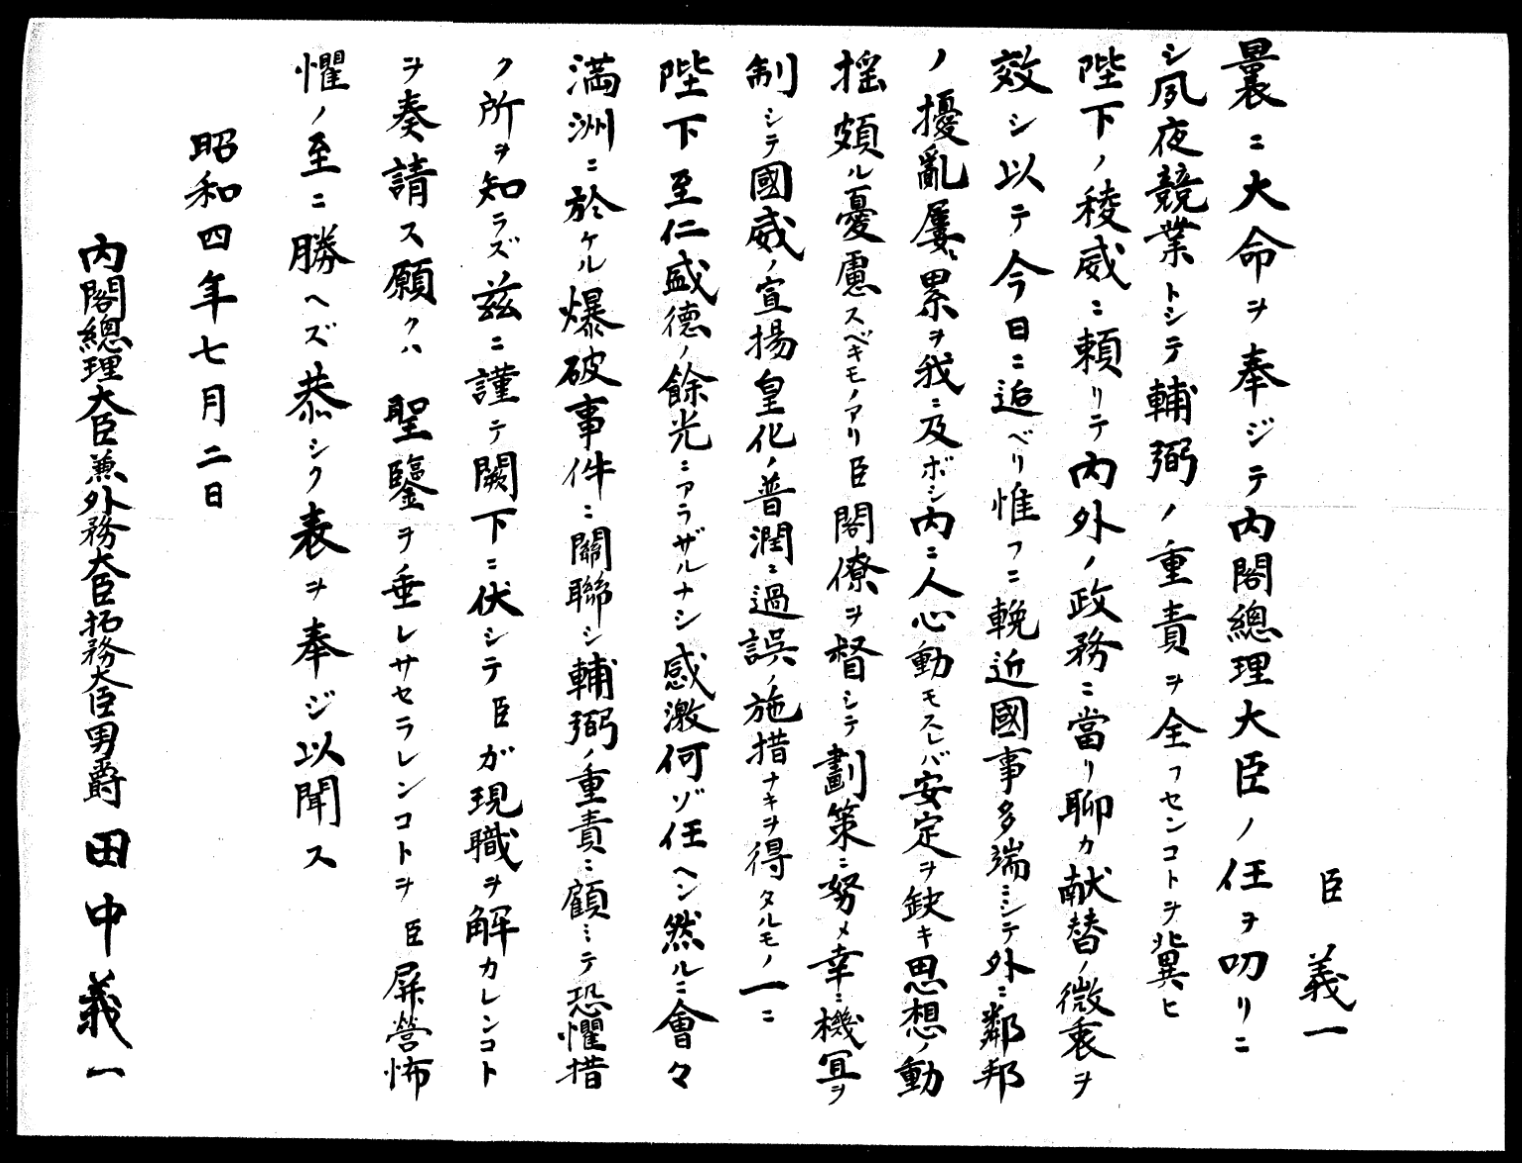 臣義一
曩ニ大命ヲ奉ジテ内閣總理大臣ノ任ヲ叨リニ
シ夙夜競業トシテ輔弼ノ重責ヲ全フセンコトヲ冀ヒ
陛下ノ稜威ニ頼リテ内外ノ政務ニ當リ聊カ献替ノ微衷ヲ
效シ以テ今日ニ迨ベリ惟フニ輓近國事多端ニシテ外ニ鄰邦
ノ擾亂屡〻累ヲ我ニ及ボシ内ニ人心動モスレバ安定ヲ缺キ思想ノ動
揺頗ル憂慮スベキモノアリ臣閣僚ヲ督シテ劃策ニ努メ幸ニ機宜ヲ
制シテ國威ノ宣揚皇化ノ普潤ニ過誤ノ施措ナキヲ得タルモノ一ニ
陛下至仁盛德ノ餘光ニアラザルナシ感激何ゾ任ヘン然ルニ會々
満洲ニ於ケル爆破事件ニ關聯シ輔弼ノ重責ニ顧ミテ恐懼措
ク所ヲ知ラズ茲ニ謹テ闕下ニ伏シテ臣ガ現職ヲ解カレンコト
ヲ奏請ス願クハ聖鑒ヲ垂レサセラレンコトヲ臣屏營怖
懼ノ至ニ勝ヘズ恭シク表ヲ奉ジ以聞ス
昭和四年七月二日
内閣總理大臣兼外務大臣拓務大臣男爵田中義一